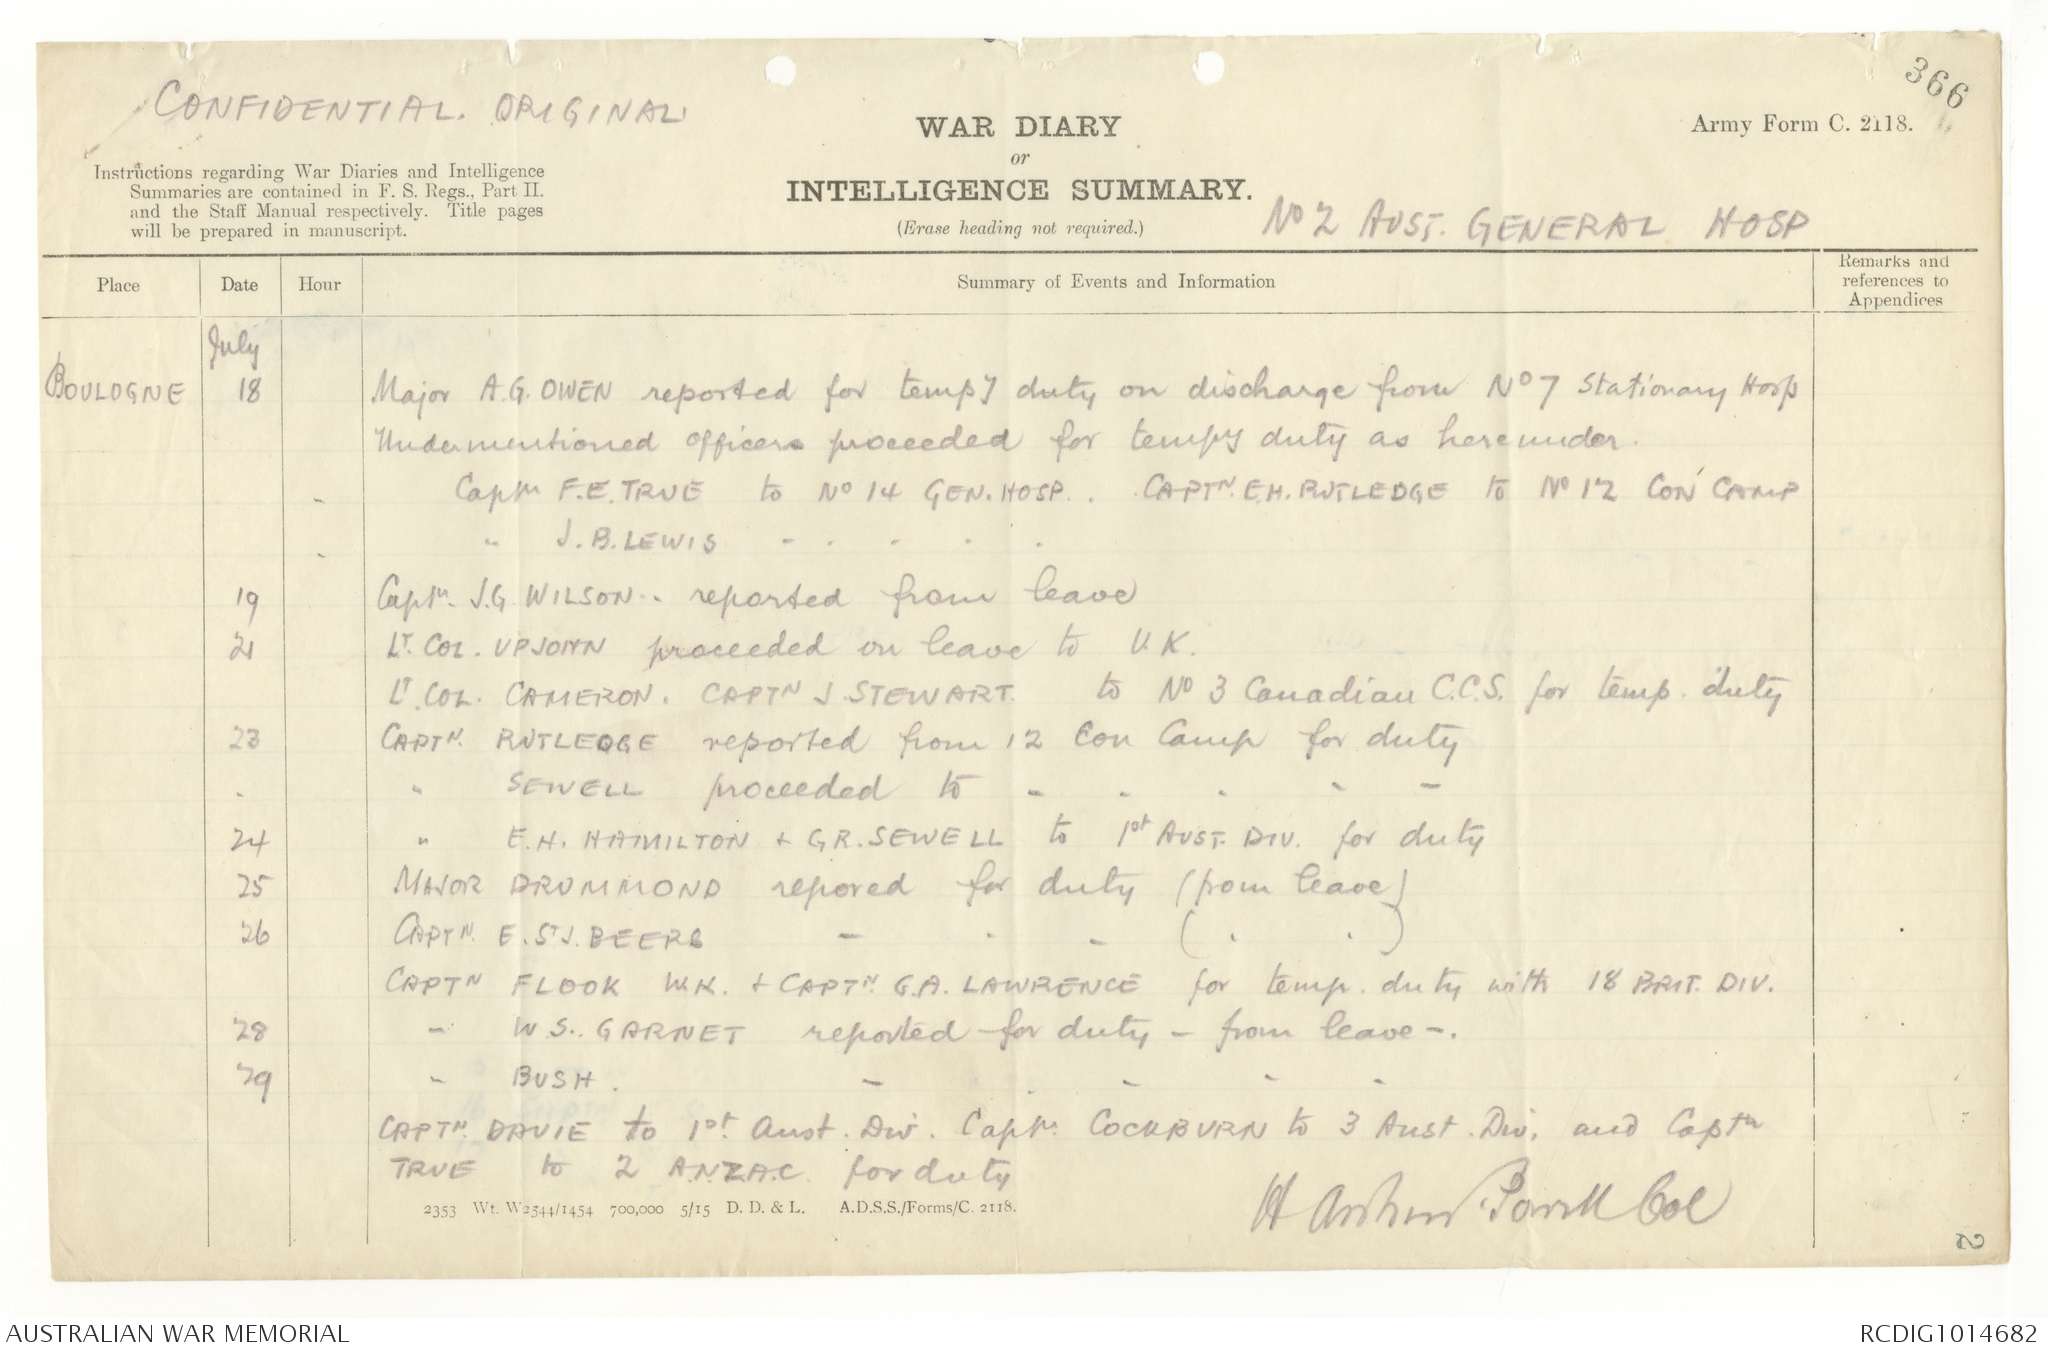 366
CONFIDENTIAL. ORIGINAL
WAR DIARY
or
INTELLIGENCE SUMMARY.
(Erase heading not required.)
Army Form C. 2118.
Instructions regarding War Diaries and Intelligence
Summaries are contained in F. S. Regs., Part II.
and the Staff Manual respectively. Title pages
will be prepared in manuscript.
No 2 AUST. GENERAL HOSP
Place Date Hour Summary of Events and Information Remarks and references to Appendices
July
BOULOGNE 18 Major A.G. OWEN reported for tempy duty on discharge from No 7 Stationary Hosp
Undermentioned officers proceeded for tempy duty as hereunder.
Captn F.E. TRUE to No 14 GEN. HOSP. . CAPTN. E.H. RUTLEDGE to No 12 CON CAMP
" J.B. LEWIS - . . . .
19 Captn. J.G. WILSON. reported from leave
21 LT. COL. UPJOHN proceeded on leave to U.K.
LT. COL. CAMERON. CAPTN J. STEWART. to No 3 Canadian C.C.S. for temp. duty
23 CAPTN. RUTLEDGE reported from 12 Con Camp for duty
. " SEWELL proceeded to - - - - -
24 " E.H. HAMILTON + G.R. SEWELL to 1st AUST. DIV. for duty
25 MAJOR DRUMMOND repored for duty (from leave)
26 CAPTN. E. ST J. BEERS - . - ( . . )
CAPTN FLOOK W.K. + CAPTN. G.A. LAWRENCE for temp. duty with 18 BRIT. DIV.
28 " W.S. GARNET reported for duty - from leave -.
29 " BUSH. - . - - -
CAPTN. DAVIE to 1st. Aust. Div. Captn. COCKBURN to 3 Aust. Div. and Captn
TRUE to 2 A.N.Z.A.C. for duty
2353 Wt. W2544/1454 700,000 5/15 D. D. & L. A.D.S.S./Forms/C. 2118.
Powell Col
2
AUSTRALIAN WAR MEMORIAL
RCDIG1014682